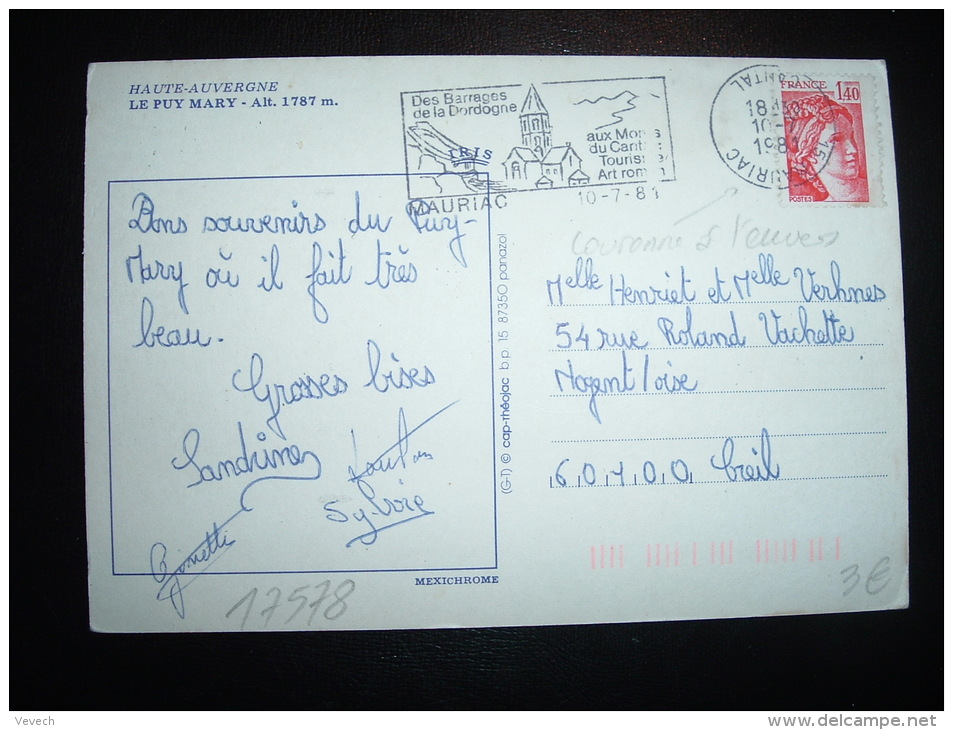 HAUTE-AUVERGNE
LE PUY MARY - Alt. 1787 m.
Des Barrages
de la Dordogne
IRIS
aux Monts
du Cantal
Tourisme
Art roman
MAURIAC
10-7-81
CANTAL
18
10-
1981
15 MAURIAC
FRANCE
1,40
POSTES
couronne à l'envers
Bons souvenirs du Puy-
Mary où il fait très
beau.
Grosses bises
Sandrine
Sylvie
Ginette
Melle Henriet et Melle Verhnes
54 rue Roland Vachette
Nogent/oise
60100 Creil
(G-1) © cap-théojac b.p. 15 87350 panazol
MEXICHROME
17578
3€
Vevech
www.delcampe.net